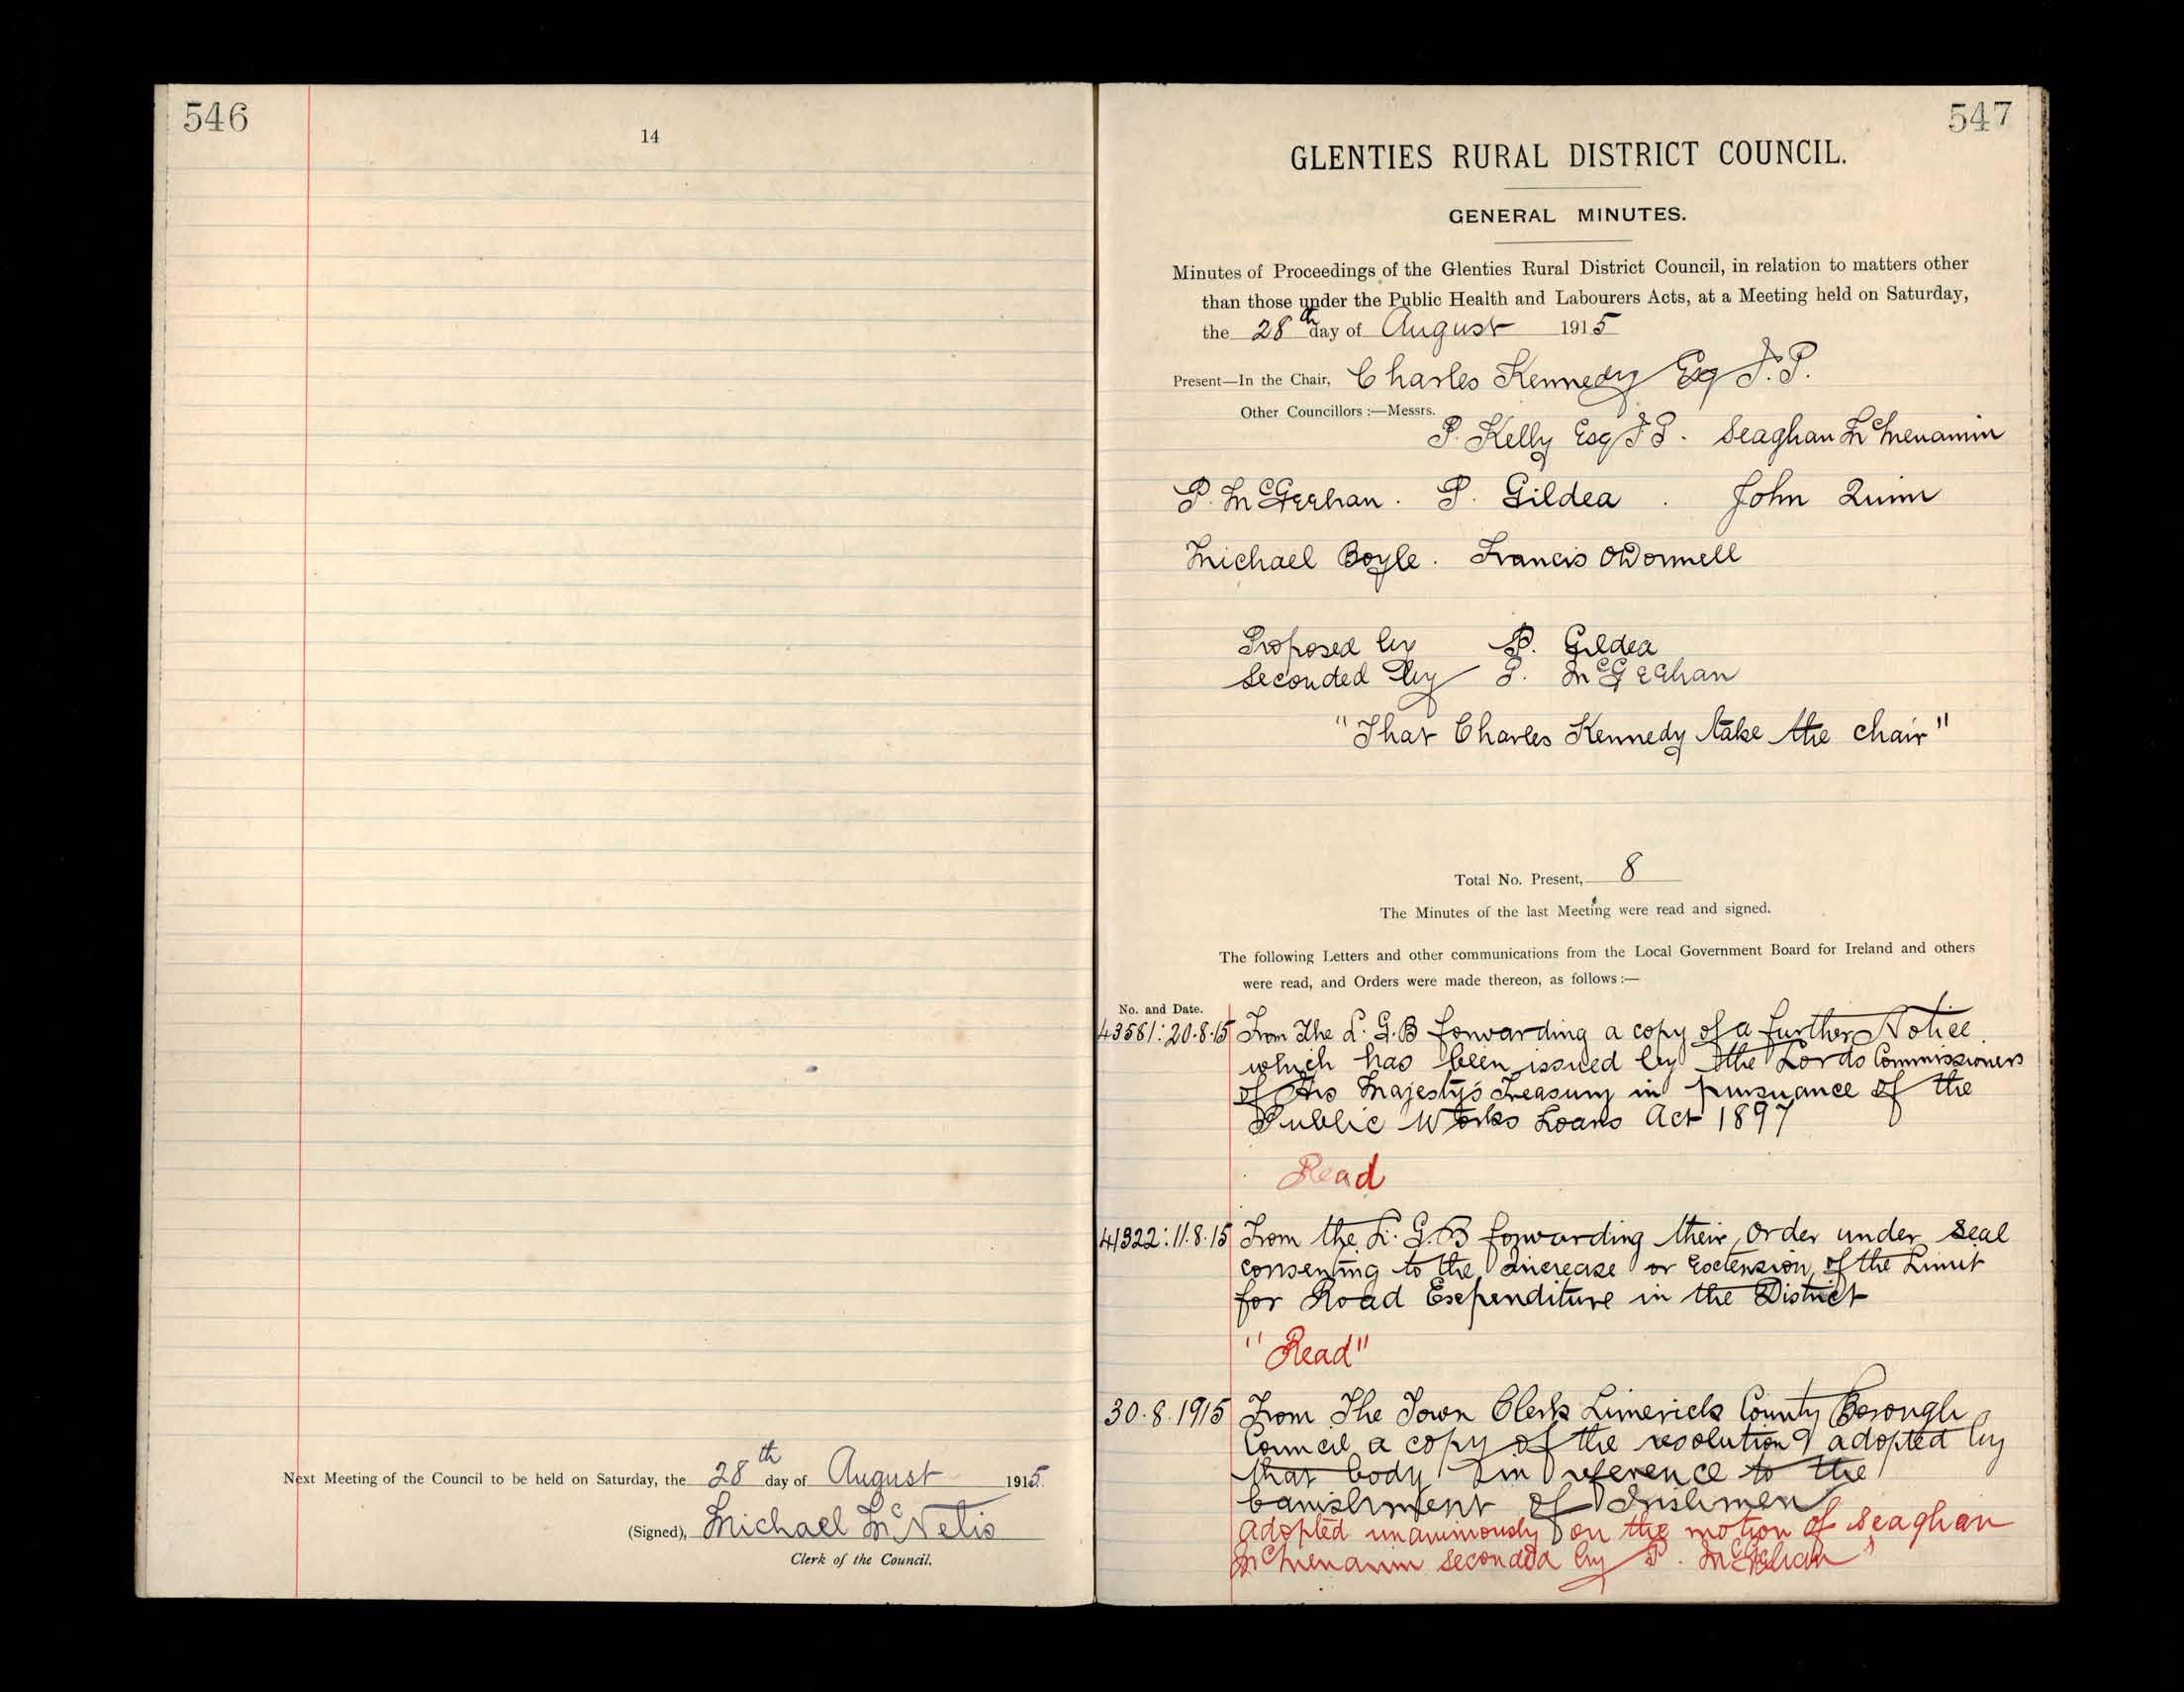 546
14
Next Meeting of the Council to be held on Saturday, the 28th day of August 1915.
(Signed), Michael McNelis
Clerk of the Council.
547
GLENTIES RURAL DISTRICT COUNCIL.
GENERAL MINUTES.
Minutes of Proceedings of the Glenties Rural District Council, in relation to matters other
than those under the Public Health and Labourers Acts, at a Meeting held on Saturday,
the 28th day of August 1915
Present—In the Chair, Charles Kennedy Esq J.P.
Other Councillors :—Messrs.
P. Kelly Esq J P. Seaghan McMenamin
P. McGeehan. P. Gildea. John Quinn
Michael Boyle. Francis O'Donnell
Proposed by P. Gildea
Seconded by P. McGeehan
"That Charles Kennedy take the chair"
Total No. Present, 8
The Minutes of the last Meeting were read and signed.
The following Letters and other communications from the Local Government Board for Ireland and others
were read, and Orders were made thereon, as follows :—
No. and Date.
43581:20.8.15 From The L.G.B forwarding a copy of a further Notice
which has been issued by the Lords Commissioners
of His Majesty's Treasury in pursuance of the
Public Works Loans Act 1897
Read
41322:11.8.15 From the L.G.B forwarding their Order under Seal
consenting to the increase or Extension of the Limit
for Road Expenditure in the District
"Read"
30.8.1915 From The Town Clerk Limerick County Borough
Council a copy of the resolution adopted by
that body in reference to the
banishment of Irishmen
Adopted unanimously on the motion of Seaghan
McMenamin seconded by P. McGeehan